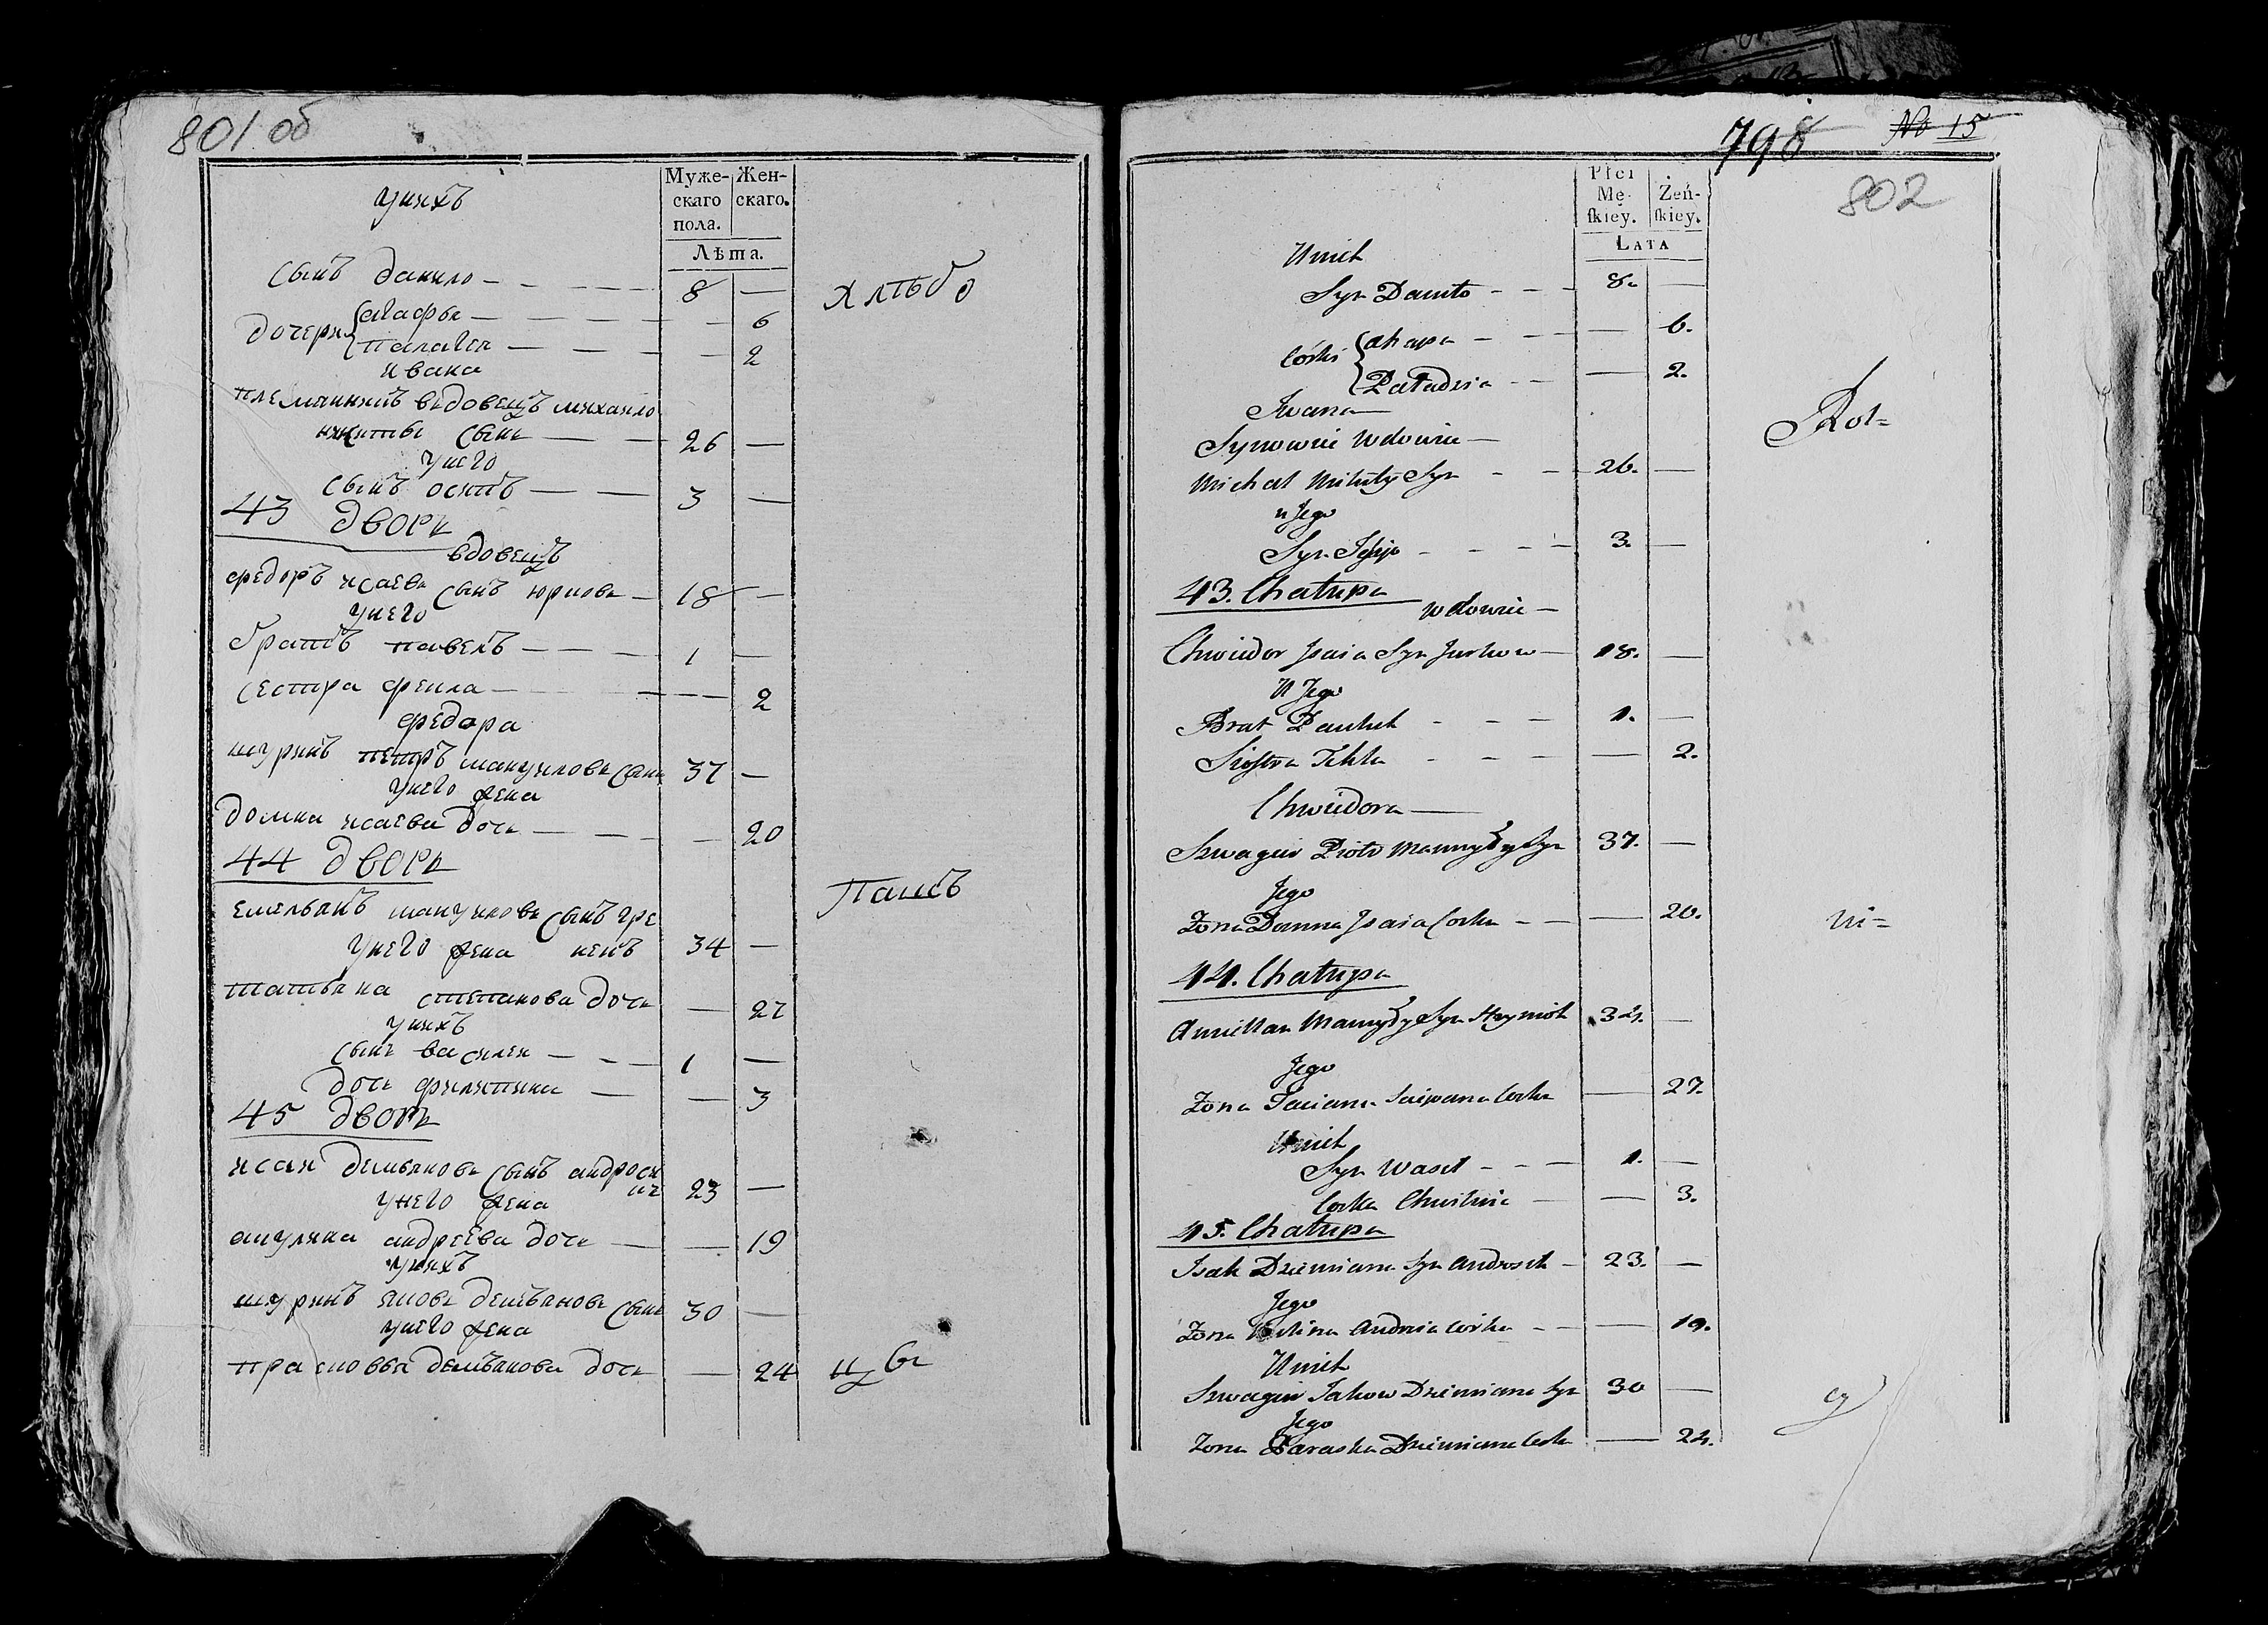 801 об
Муже-
скаго
пола.
Жен-
скаго.
Лѣта.
унихъ
сынъ данило — — — 8 —
дочери { агафья — — — — 6
палагея — — — — 2
ивана
племянникъ вдовецъ михаило
никиты сынъ — — 26 —
унего
сынъ осипъ — — 3 —
43 дворъ
вдовецъ
федоръ исаевъ сынъ юрковъ — 18 —
унего
братъ павелъ — — — 1 —
сестра фекла — — — — 2
федора
шуринъ петръ мануиловъ сынъ 37 —
унего жена
домна исаева дочь — — — 20
44 дворъ
емельянъ мануиловъ сынъ гре
унего жена 34 —
татьяна степанова дочь — 27
унихъ
сынъ василеи — — 1 —
дочь — — 3
45 дворъ
исаи демьяновъ сынъ андроси
унего жена 23 —
акулина андреева дочь — — 19
унихъ
шуринъ яковъ демьяновъ сынъ 30 —
унего жена
прасковья демьянова дочь — 24
Хлѣбо
Пашѣ
цы
798
No 15
802
Płci
Mę-
skiey.
Żeń-
skiey.
Lata
Unich
Syn Daniło — — 8. —
Córki { Ahapa — — — 6.
Paładzia — — — 2.
Iwana —
Synowiec Wdowiec —
Michał Mikity Syn — — 26. —
u Jego
Syn — — — 3. —
43. Chałupa
Wdowiec —
Chwiedor Jsaia Syn Jurkow — 18. —
U Jego
Brat Pauluk — — — 1. —
Siostra Tekla — — — — 2.
Chwiedora —
Szwagier Piotr Manuyły Syn 37. —
Jego
Żona Domna Jsaia Corka — — — 20.
44. Chałupa
Amillan Manuyły Syn 34. —
Jego
Żona Taciana Corka — 27.
Unich
Syn Wasil — — — 1. —
Corka — — 3.
45. Chałupa
Isak Dziemiana Syn Androsik — 23. —
Jego
Żona Andreia Corka — — — 19.
Unich
Szwagier Jakow Dziemiana Syn 30 —
Jego
Żona Paraska Dziemiana Corka — 24.
Rol=
ni=
cy